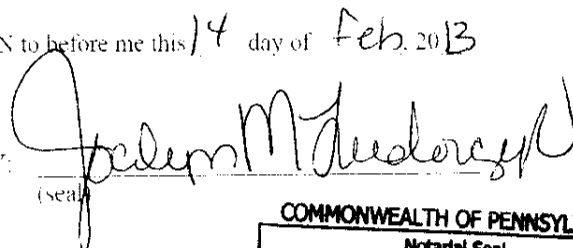 N to before me this 14 day of Feb. 2013
Jocelyn M
(seal)
COMMONWEALTH OF PENNSYL
Notarial Seal